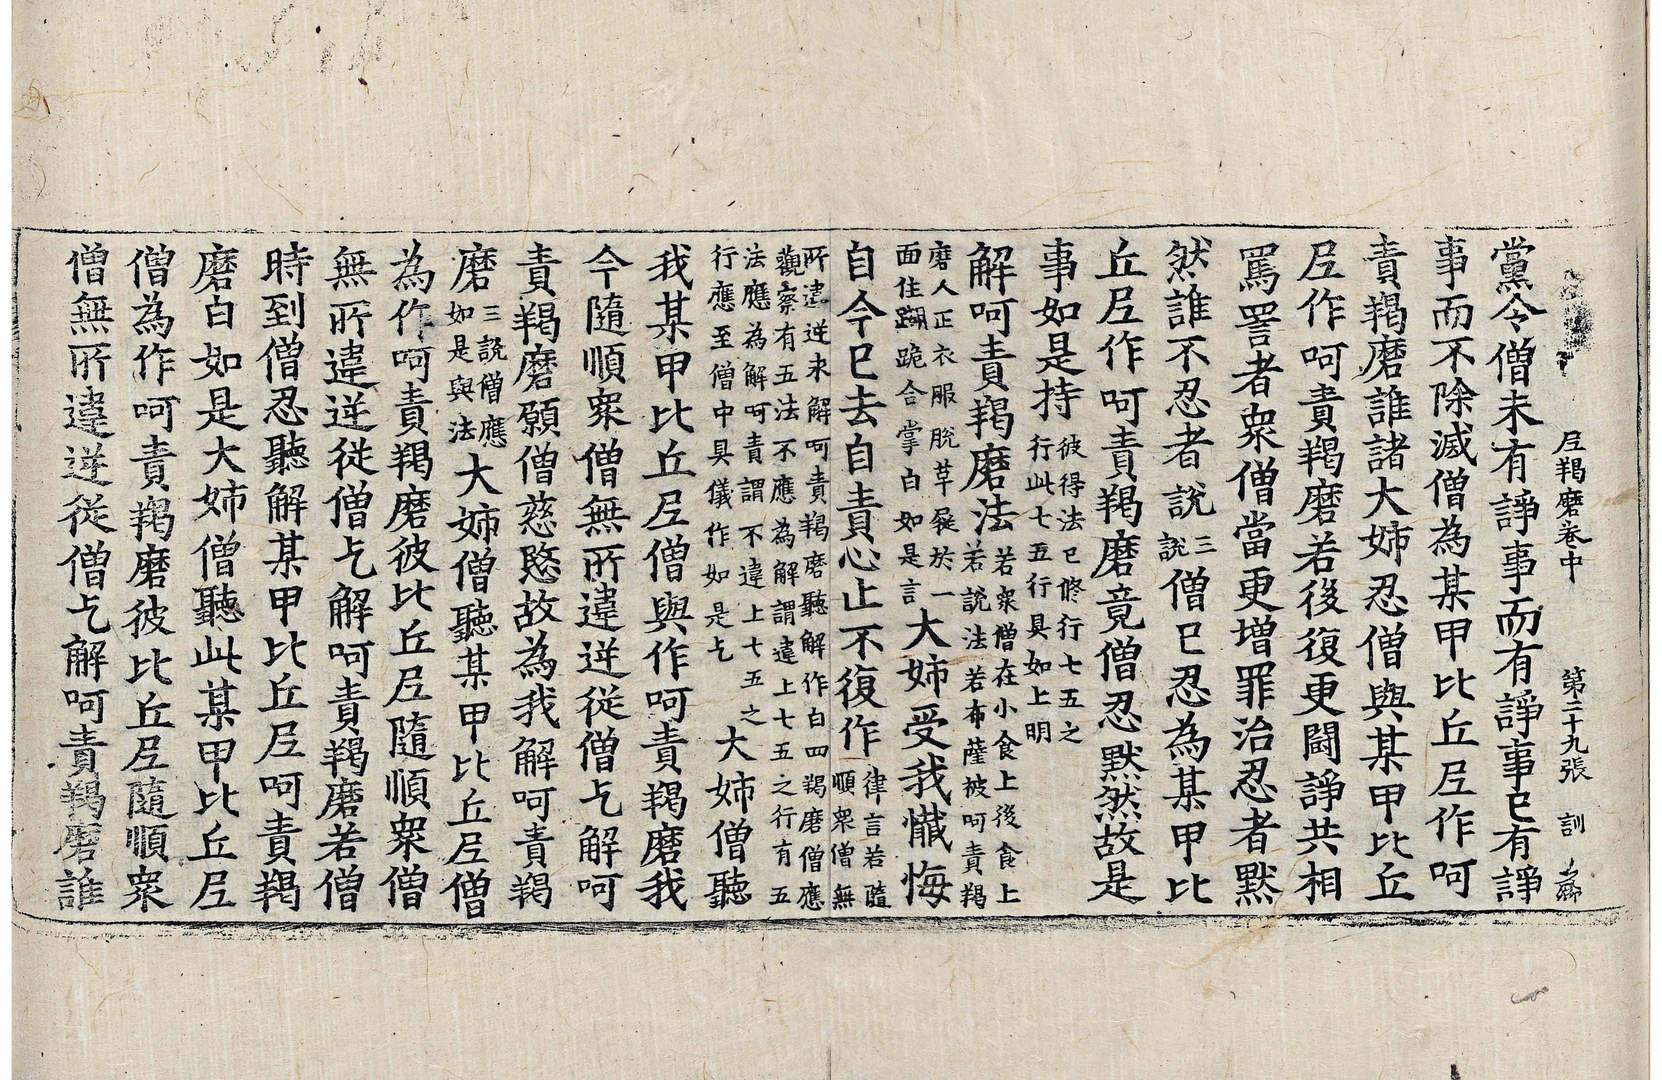 尼羯磨卷中 第二十九張 訓
黨令僧未有諍事而有諍事已有諍
事而不除滅僧為某甲比丘尼作呵
責羯磨誰諸大姉忍僧與某甲比丘
尼作呵責羯磨若後復更鬪諍共相
罵詈者衆僧當更增罪治忍者默
然誰不忍者說三說僧已忍為某甲比
丘尼作呵責羯磨竟僧忍默然故是
事如是持彼得法已修行七五之行此七五行具如上明
解呵責羯磨法若衆僧在小食上後食上若說法若布薩被呵責羯
磨人正衣服脫革屣於一面住蹋跪合掌白如是言大姉受我懺悔
自今已去自責心止不復作律言若隨順衆僧無
所違逆求解呵責羯磨聽解作白四羯磨僧應觀察有五法不應為解謂違上七五之行有五
法應為解呵責謂不違上七五之行應至僧中具儀作如是乞大姉僧聽
我某甲比丘尼僧與作呵責羯磨我
今隨順衆僧無所違逆從僧乞解呵
責羯磨願僧慈愍故為我解呵責羯
磨三說僧應如是與法大姉僧聽某甲比丘尼僧
為作呵責羯磨彼比丘尼隨順衆僧
無所違逆從僧乞解呵責羯磨若僧
時到僧忍聽解某甲比丘尼呵責羯
磨白如是大姉僧聽此某甲比丘尼
僧為作呵責羯磨彼比丘尼隨順衆
僧無所違逆從僧乞解呵責羯磨誰